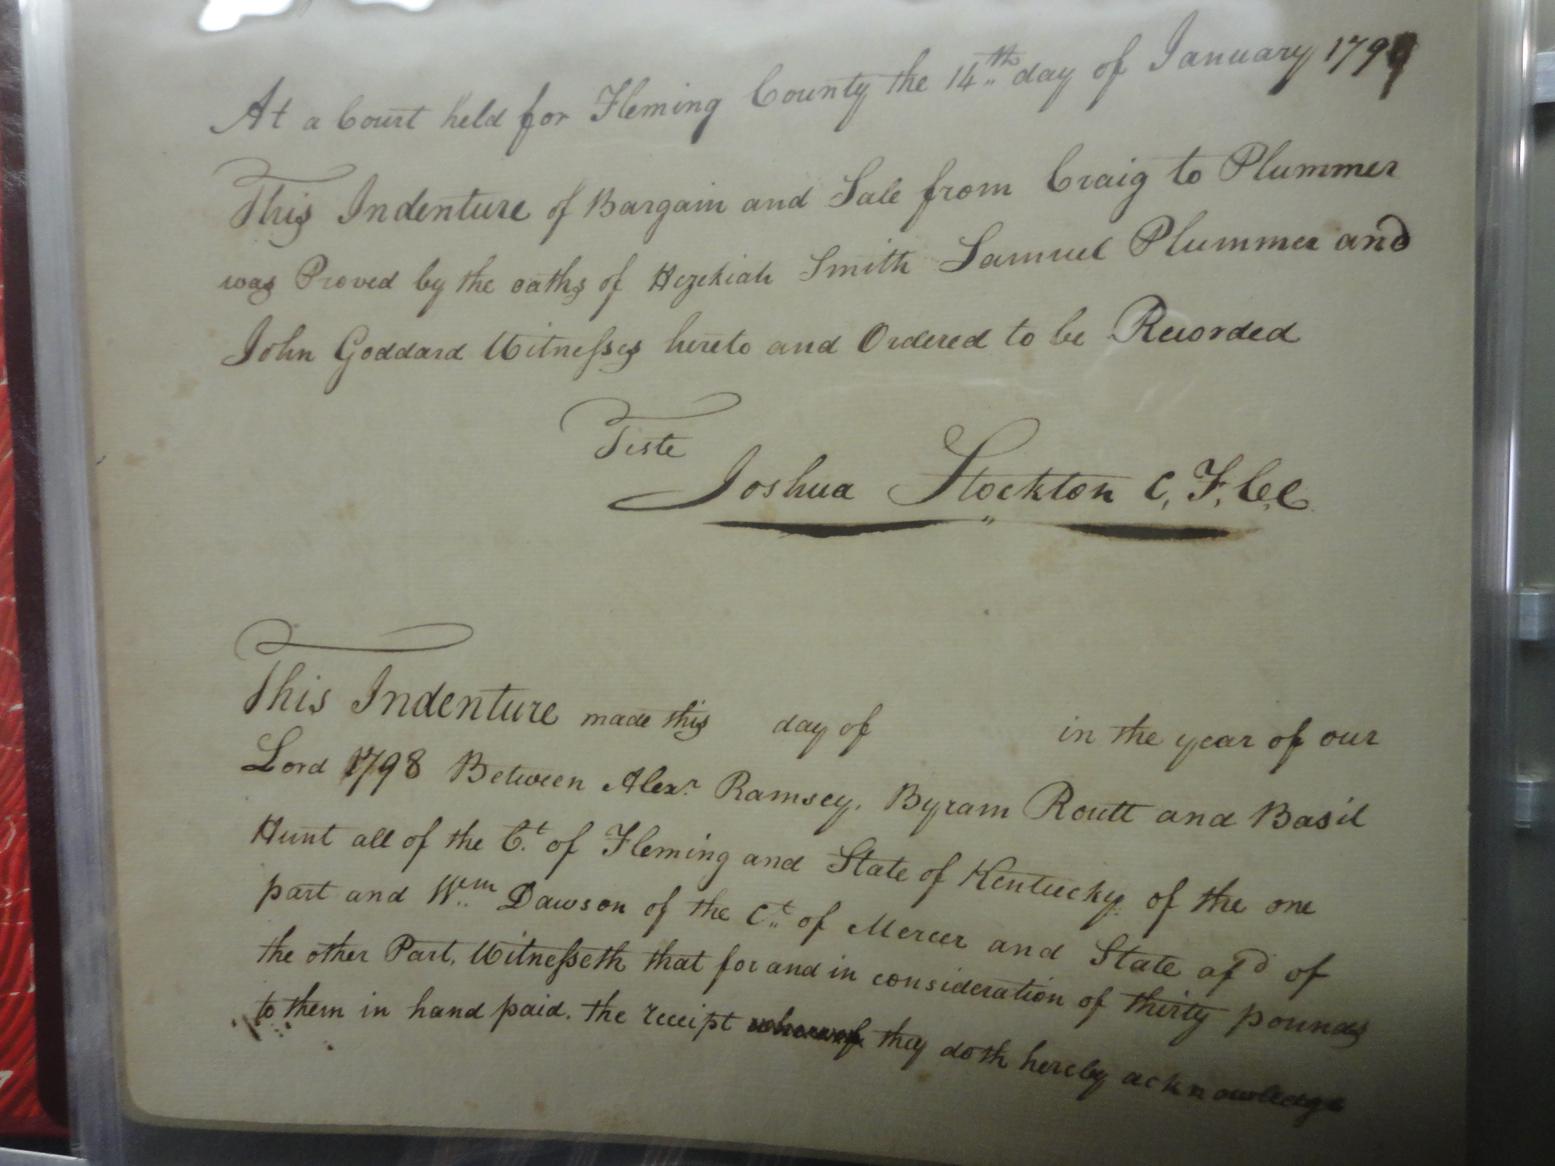 At a Court held for Fleming County the 14th day of January 1799
This Indenture of Bargain and Sale from Craig to Plummer
was Proved by the oaths of Hezekiah Smith Samuel Plummer and
John Goddard Witneſses hereto and Ordered to be Recorded
Teste
Joshua Stockton C. F. C. C
This Indenture made this day of in the year of our
Lord 1798 Between Alexr Ramsey, Byram Routt and Basil
Hunt all of the Ct of Fleming and State of Kentucky of the one
part and Wm Dawson of the Ct of Mercer and State afd of
the other Part, Witneſseth that for and in consideration of thirty pounds
to them in hand paid. the receipt whereof they doth hereby acknowledge